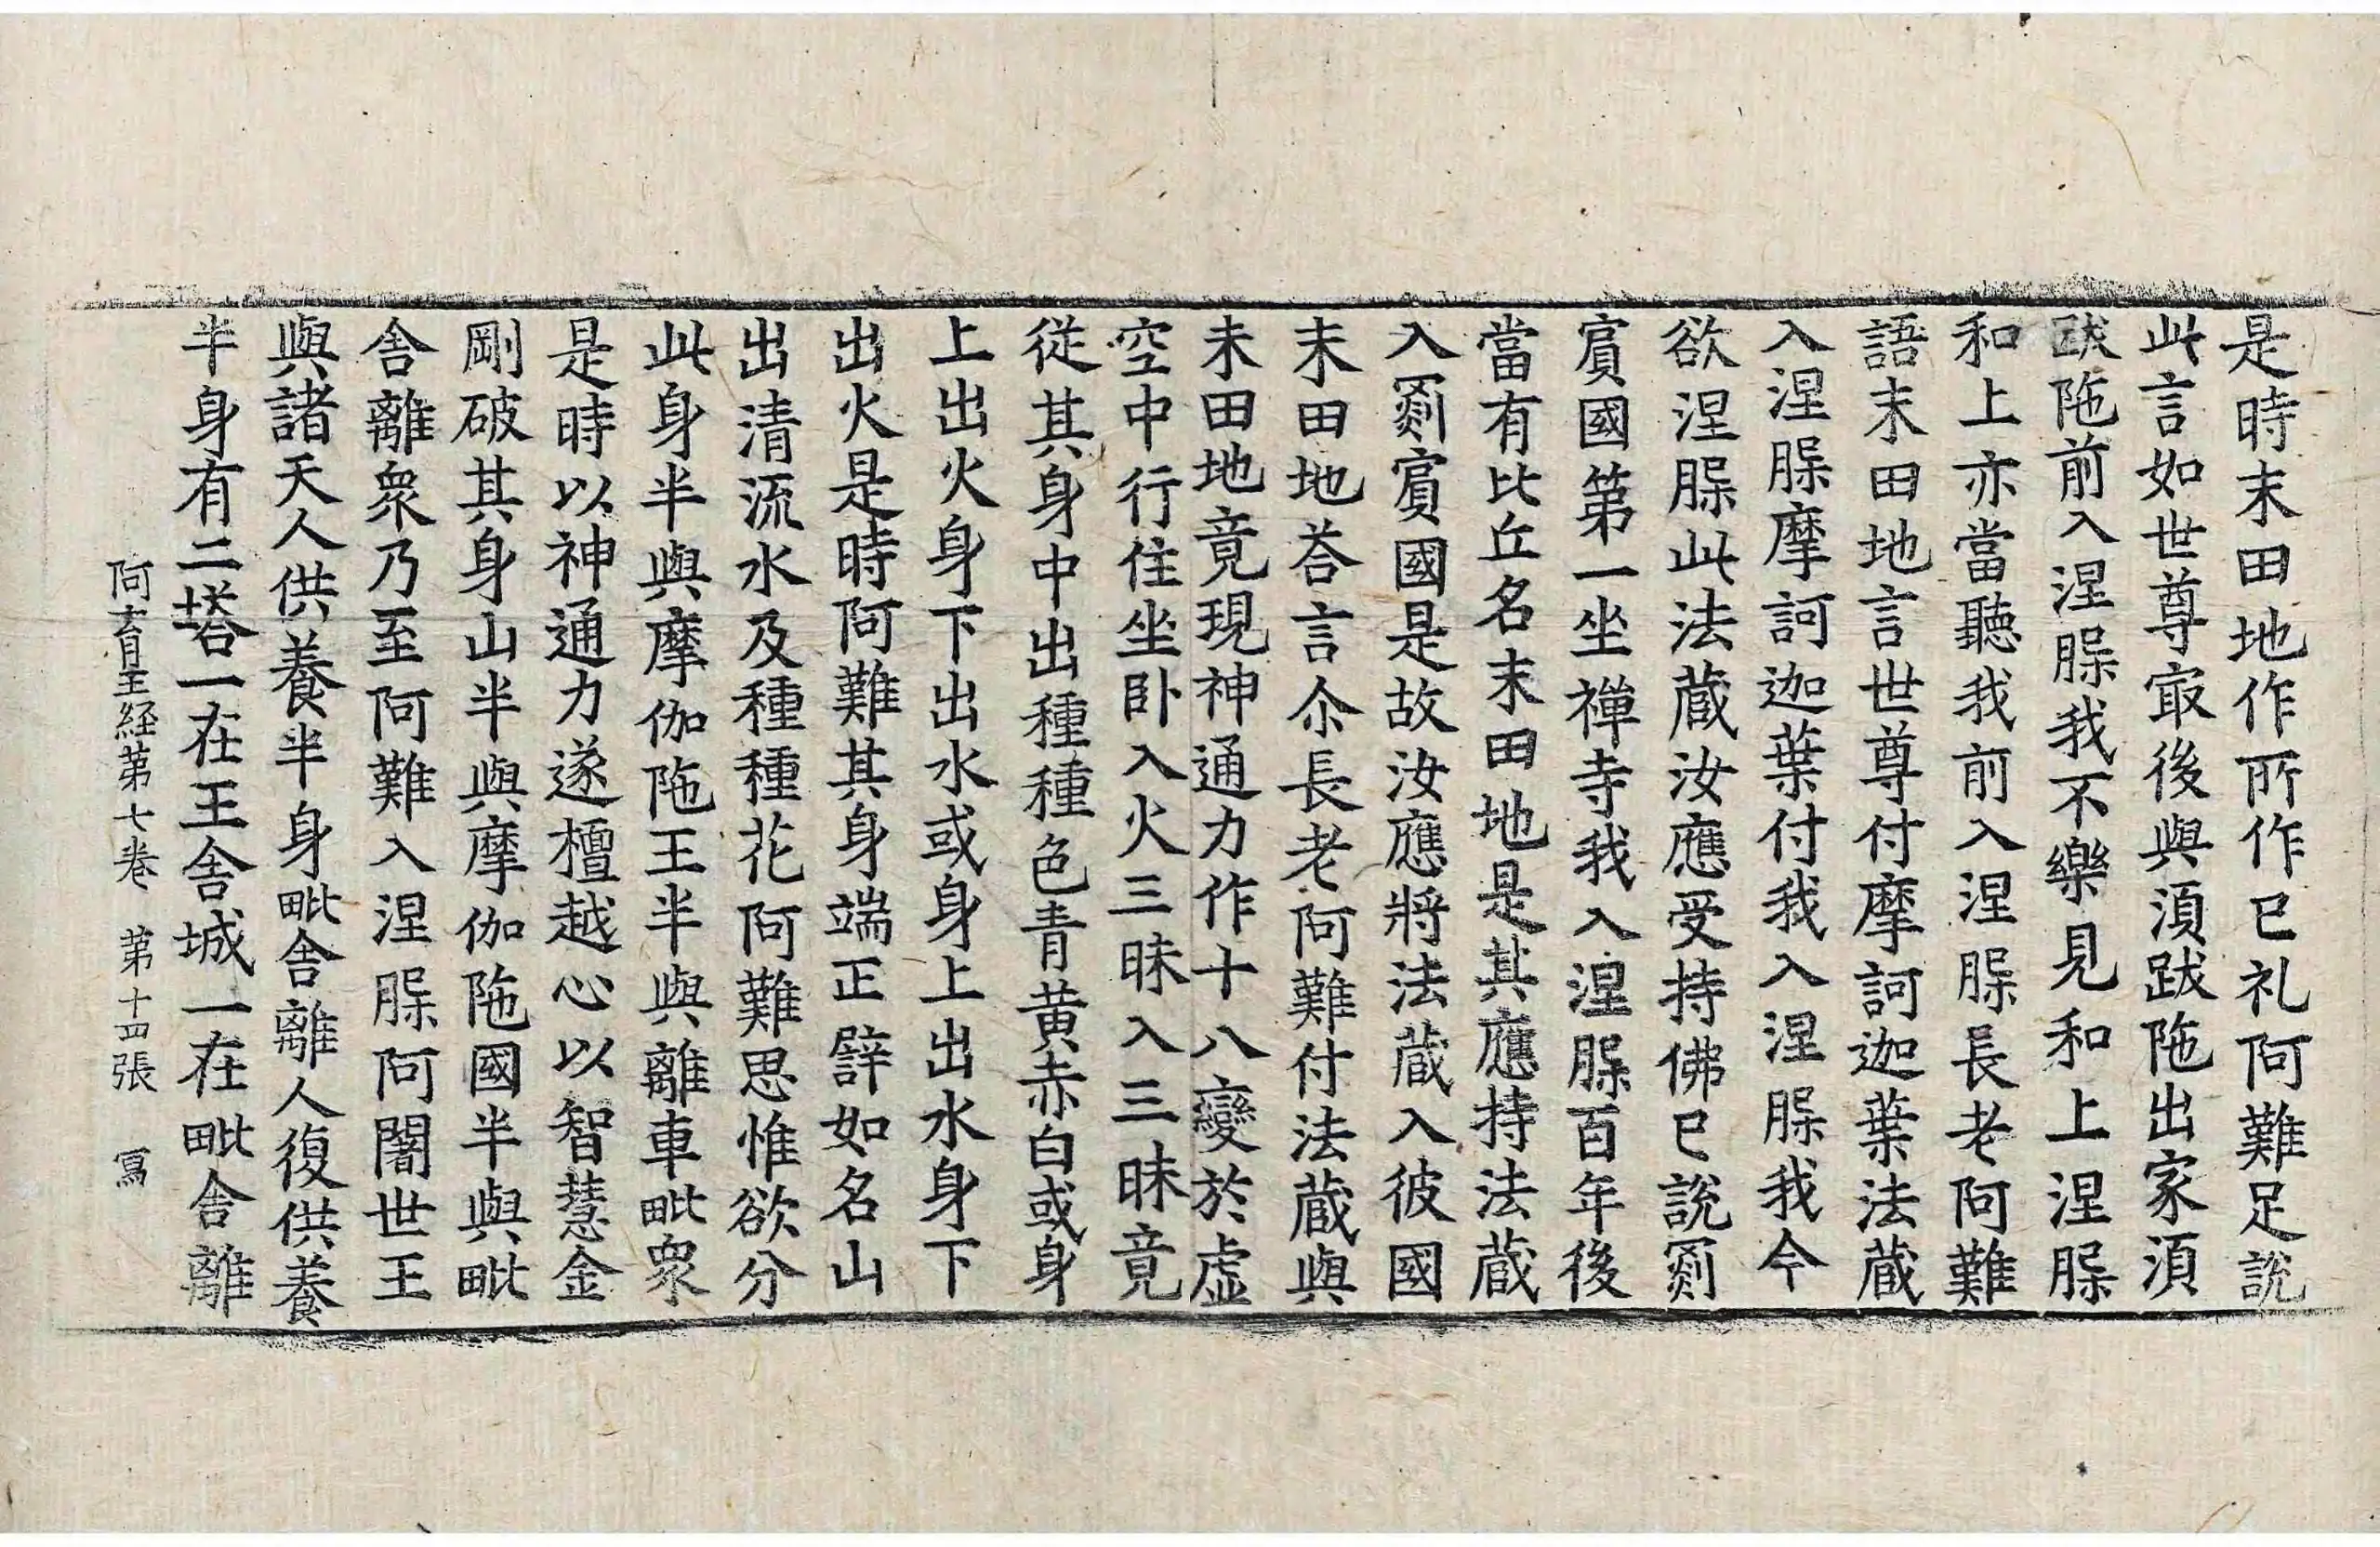 是時末田地作所作已礼阿難足說
此言如世尊㝡後與湏跋陁出家湏
跋陁前入涅脲我不樂見和上涅脲
和上亦當聽我前入涅脲長老阿難
語末田地言世尊付摩訶迦葉法蔵
入涅脲摩訶迦葉付我入涅脲我今
欲涅脲此法蔵汝應受持佛已說罽
賔國第一坐禅寺我入涅脲百年後
當有比丘名末田地是其應持法蔵
入罽賔國是故汝應將法蔵入彼國
末田地荅言尒長老阿難付法蔵與
末田地竟現神通力作十八變於虛
空中行住坐卧入火三昧入三昧竟
從其身中出種種色青黄赤白或身
上出火身下出水或身上出水身下
出火是時阿難其身端正譬如名山
出清流水及種種花阿難思惟欲分
此身半與摩伽陁王半與離車毗衆
是時以神通力遂檀越心以智慧金
剛破其身山半與摩伽陁國半與毗
舎離衆乃至阿難入涅脲阿闍世王
與諸天人供養半身毗舎離人復供養
半身有二塔一在王舎城一在毗舎離
阿育王経第七卷 第十四張 寫